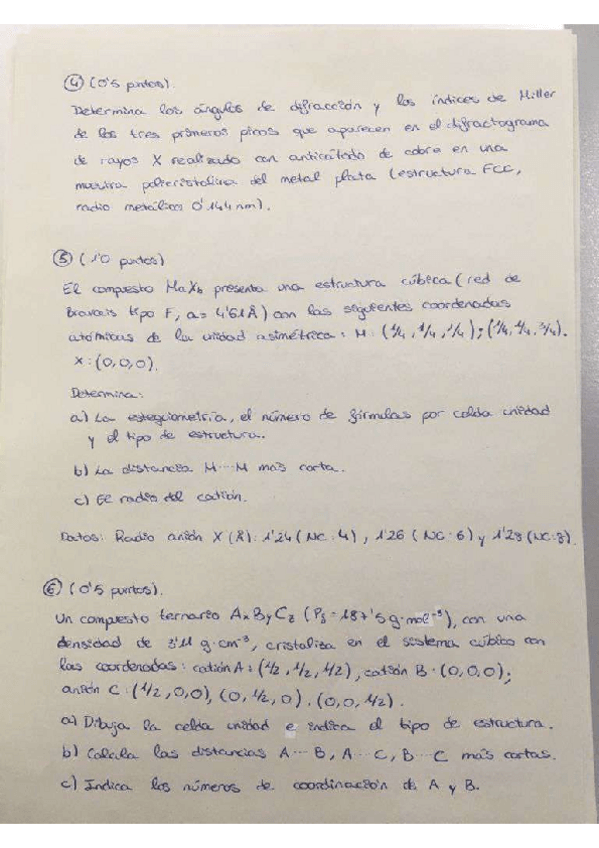 ④ (0'5 puntos).
Determina los ángulos de difracción y los índices de Miller
de los tres primeros picos que aparecen en el difractograma
de rayos X realizado con anticátodo de cobre en una
muestra policristalina del metal plata (estructura FCC,
radio metálico 0'144 nm).
⑤ (1'0 puntos)
El compuesto MaXb presenta una estructura cúbica (red de
Bravais tipo F, a = 4'61 Å) con las siguientes coordenadas
atómicas de la unidad asimétrica: M: (1/4, 1/4, 1/4); (1/4, 1/4, 3/4).
X: (0,0,0).
Determina:
a) La estequiometría, el número de fórmulas por celda unidad
y el tipo de estructura.
b) La distancia M···M más corta.
c) El radio del catión.
Datos: Radio anión X (Å): 1'24 (NC:4), 1'26 (NC:6) y 1'28 (NC:8).
⑥ (0'5 puntos).
Un compuesto ternario AxByCz (Pf = 187'5 g·mol⁻³), con una
densidad de 3'11 g·cm⁻³, cristaliza en el sistema cúbico con
las coordenadas: catión A: (1/2, 1/2, 1/2), catión B: (0,0,0);
anión C: (1/2, 0, 0), (0, 1/2, 0), (0, 0, 1/2).
a) Dibuja la celda unidad e indica el tipo de estructura.
b) Calcula las distancias A···B, A···C, B···C más cortas.
c) Indica los números de coordinación de A y B.